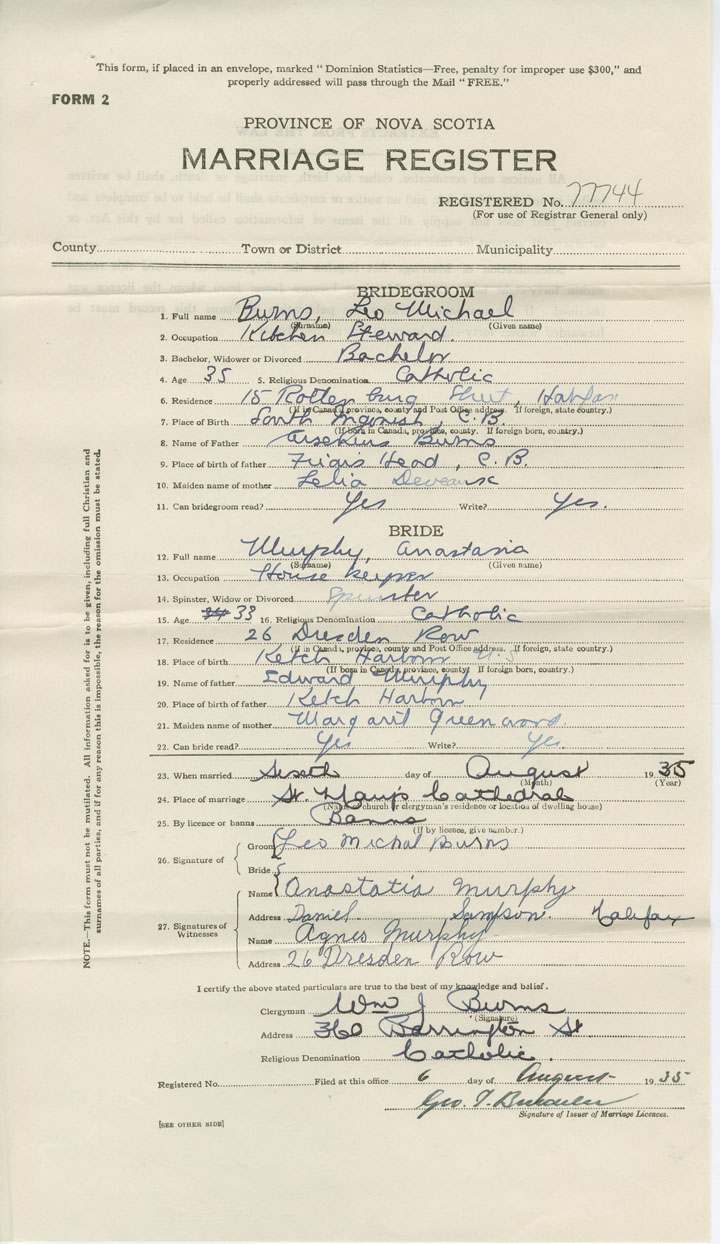 This form, if placed in an envelope, marked "Dominion Statistics—Free, penalty for improper use $300," and
properly addressed will pass through the Mail "FREE."
FORM 2
PROVINCE OF NOVA SCOTIA
MARRIAGE REGISTER
REGISTERED No. 77744
(For use of Registrar General only)
County Town or District Municipality
BRIDEGROOM
1. Full name Burns, Leo Michael
(Surname) (Given name)
2. Occupation Kitchen Steward.
3. Bachelor, Widower or Divorced Bachelor
4. Age 35 5. Religious Denomination Catholic
6. Residence 15 Rottenburg Street, Halifax
(If in Canada, province, county and Post Office address. If foreign, state country.)
7. Place of Birth South Ingonish, C.B.
(If born in Canada, province, county. If foreign born, country.)
8. Name of Father Burns
9. Place of birth of father Head, C.B.
10. Maiden name of mother Lelia
11. Can bridegroom read? Yes Write? Yes.
BRIDE
12. Full name Murphy, Anastasia
(Surname) (Given name)
13. Occupation House keeper
14. Spinster, Widow or Divorced Spinster
15. Age 33 16. Religious Denomination Catholic
17. Residence 26 Dresden Row
(If in Canada, province, county and Post Office address. If foreign, state country.)
18. Place of birth Ketch Harbour N.S
(If born in Canada, province, county. If foreign born, country.)
19. Name of father Edward Murphy
20. Place of birth of father Ketch Harbour
21. Maiden name of mother Margaret Greenwood
22. Can bride read? Yes Write? Yes.
23. When married day of August 1935
(Month) (Year)
24. Place of marriage St. Mary's Cathedral
(Name of church or clergyman's residence or location of dwelling house)
25. By licence or banns Banns
(If by licence, give number.)
26. Signature of
Groom Leo Michal Burns
Bride
27. Signatures of
Witnesses
Name Anastatia Murphy
Address Daniel Sampson. Halifax
Name Agnes Murphy
Address 26 Dresden Row
I certify the above stated particulars are true to the best of my knowledge and belief.
Clergyman Wm J Burns
(Signature)
Address 360 Barrington St.
Religious Denomination Catholic.
Registered No. Filed at this office 6 day of August 1935
Geo. T.
Signature of Issuer of Marriage Licences.
[SEE OTHER SIDE]
NOTE.—This form must not be mutilated. All information asked for is to be given, including full Christian and
surnames of all parties, and if for any reason this is impossible, the reason for the omission must be stated.